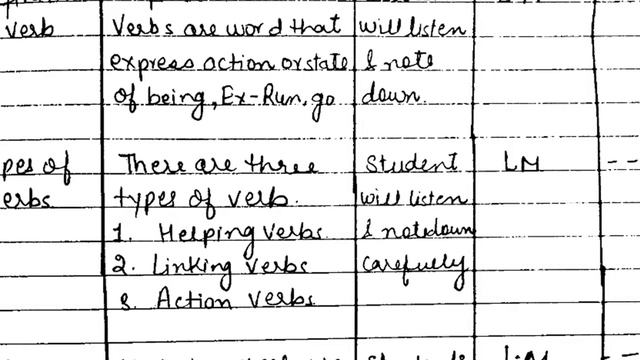 verb Verbs are word that will listen
express action or state & note
of being, Ex- Run, go down.
pes of There are three Student LM --
erbs types of verb. will listen
1. Helping verbs & notdown
2. Linking verbs carefully
3. Action verbs